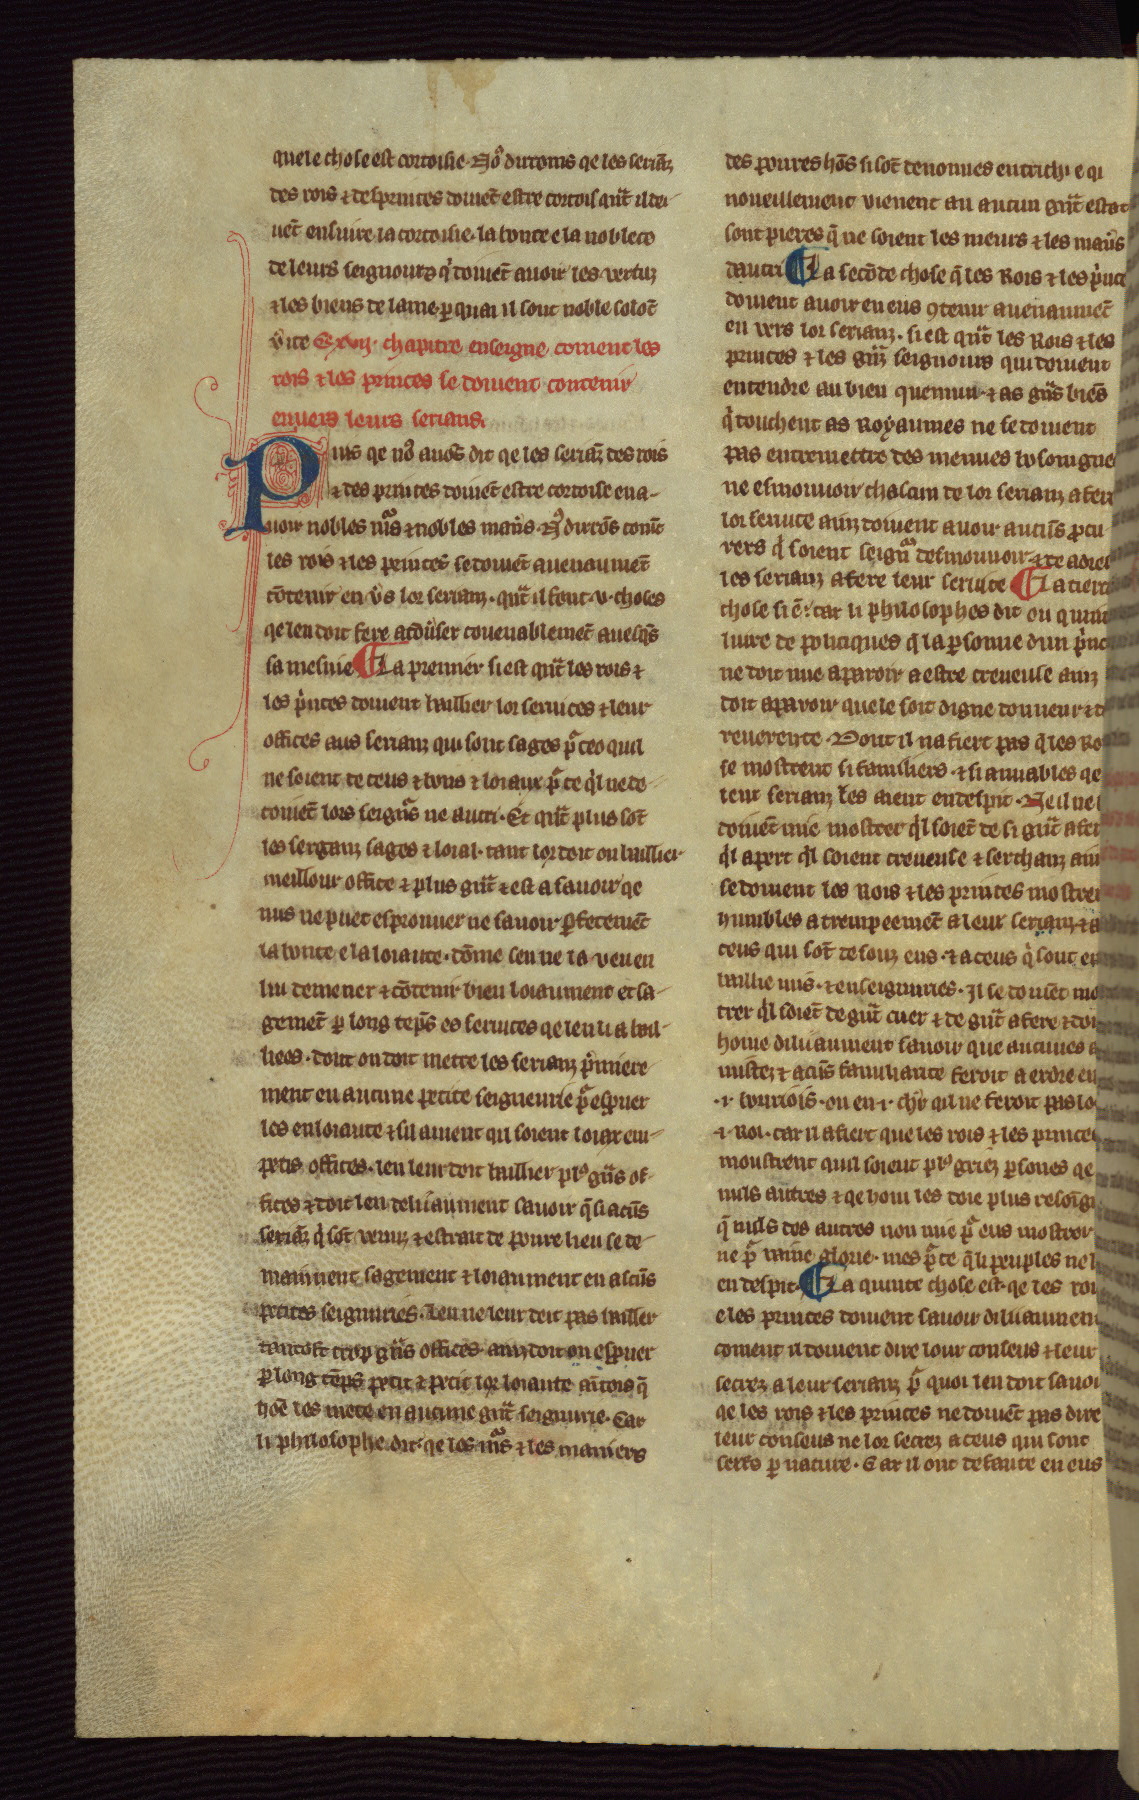 quele chose est cortoisie. No9 dirroms qe les seriāz
des rois ⁊ des princes doiuēt estre cortois qn̄t il dei-
uēt ensuire la cortoisie. la bonte e la noblece
de leurs seignours q̇ doiuēt auoir les vertuz
⁊ les biens de lame. ꝑ quai il sont noble solōc
v̓ite Exvij. chapitre enseigne coment les
rois ⁊ les princes se doiuent contenir
enuers leurs serians.
Puis qe no9 auōs dit qe les seriāz des rois
⁊ des princes doiuēt estre cortoise en a-
uoir nobles mͬs ⁊ nobles man̓s. No9 dirrōs comēt
les rois ⁊ les princes se doiuēt auenaumēt
cōtenir en v̓s lor serianz. qn̄t il sent .v. choses
qe len doit fere a cōu̓ser couenablemēt auesqs̄
sa mesnie La premier si est qn̄t les rois ⁊
les p̓nces doiuent baillier lor seruices ⁊ leur
offices aus serianz qui sont sages pᵃ ceo quil
ne soient deceus ⁊ bons ⁊ loiaux pᵃ ce q̓l ne de-
coiuēt lors seign̓s ne autri. Et qn̄t plus sōt
les serganz sages ⁊ loial. tant lor doit on baillier
meillour office ⁊ plus gn̄t ⁊ est a sauoir qe
nus ne puet esprouuer ne sauoir ꝑfetemēt
la bonte e la loiaute. dōme sen ne la veu en
lui demener ⁊ cōtenir bien loiaument et sa-
gemēt ꝑ long tēps es seruices qe len li a bail-
liees. dont on doit metre les serianz p̓miere
ment en aucune petite seigneurie pᵃ espuer
les en loiaute ⁊ sil auient qil soient loiax en-
petis offices. len leur doit baillier pl9 gn̄s of-
fices ⁊ doit len deliiaument sauoir q̄ si acūs
seriāz q̓ sōt venuz ⁊ estrait de poure lieu se de-
mainnent sagement ⁊ loiaument en alcūs
petites seignuries. Len ne leur doit pas baillier
tantost trop gn̄s offices. ainz doit on espuer
ꝑ long tēps petit ⁊ petit lor loiaute āncois q̄
hōē les mete en aucune gn̄t seignurie. Car
li philosophe dit. qe les mͬs ⁊ les maniers
des poures hōs si sōt de nonues enrichi e qi
nouellement vienent au aucun gn̄t estat
sont pieres q̄ ne soient les meurs ⁊ les man̓s
dautri La secōde chose q̄ les Rois ⁊ les p̓nce
doiuent auoir en eus 9tenir auenaumēt
en vers lor serianz. si est qn̄t les Rois ⁊ les
princes ⁊ les gn̄z seignours qui doiuent
entendre au bien quemun. ⁊ as gn̄s biēs
q̓ touchent as Royaumes ne se doiuent
pas entremettre des menues besoingne
ne esmouuoir chascun de lor serianz a fere
lor seruice ainz doiuent auoir aucūs pcu
rers q̓ soient seignͬ desmouuoir ⁊ de adrec
les serianz a fere leur seruice La tierce
chose si ē. car li philosophes dit ou quint
liure de politiques q̄ la ꝑsonne dun p̓nce
ne doit mie aparoir a estre creueuse ainz
doit aparoir quele soit digne donneur ⁊ d
reuerente. Dont il nafiert pas q̄ les Ro
se mostrent si familiers. ⁊ si amiables qe
leur serianz les aient en despit. Ne il ne
doiuēt mie mostrer q̓l soiēt de si gn̄t afer
q̓l apert q̓l soient creueuse ⁊ serchanz ain
se doiuent les Rois ⁊ les princes mostrer
humbles atrempeemēt a leur serianz ⁊ a
ceus qui sōt desouz eus. ⁊ a ceus q̓ sont en
baillie mis. ⁊ en seignuries. Il se doiuēt mo
trer q̓l soiēt de gn̄t cuer ⁊ de gn̄t afere ⁊ doi
home diliiaument sauoir que aucunes a
mistez ⁊ acūs familiarite feroit a erdre en
.i. bouriois. ou en .i. chr̄ qil ne feroit pas lo
.i. Roi. car il afiert que les rois ⁊ les princes
moustrent quil soient pl9 griez ꝑsones qe
nuls autres ⁊ qe hom les doie plus resoīg
q̄ nuls des autres non mie pᵃ eus mostrer
ne pᵃ vaine glorie. mes pᵃ ce q̄ li peuples nel
en despit. La quinte chose est. qe les roi
e les princes doiuent sauoir diliiaument
coment il doiuent dire lour conseus ⁊ leur
secrez a leur serianz pᵃ quoi len doit sauoi
qe les rois ⁊ les princes ne doiuēt pas dire
leur conseus ne lor secrez a ceus qui sont
serfs ꝑ nature. Car il ont defaute en eus